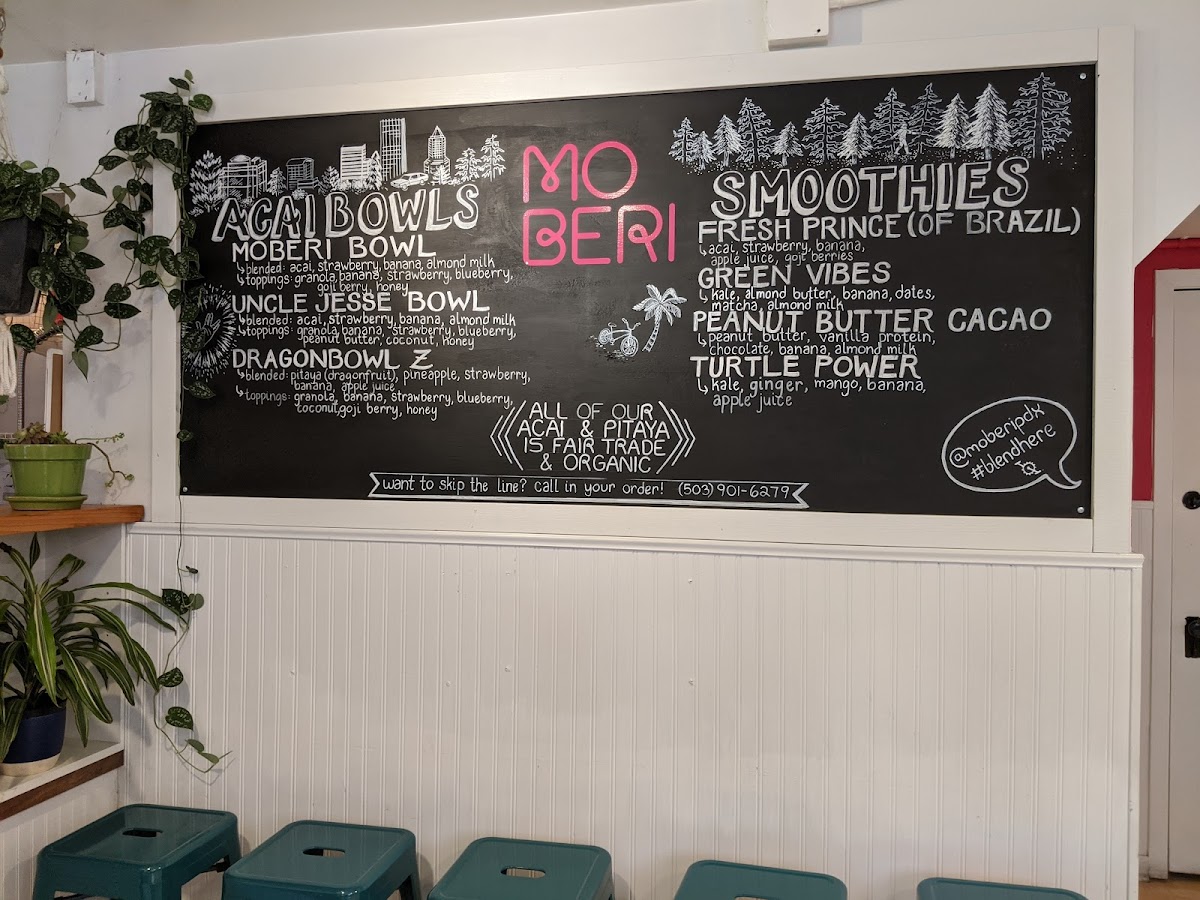 MO
BERI
ACAI BOWLS
MOBERI BOWL
blended: acai, strawberry, banana, almond milk
toppings: granola, banana, strawberry, blueberry,
goji berry, honey
UNCLE JESSE BOWL
blended: acai, strawberry, banana, almond milk
toppings: granola, banana, strawberry, blueberry,
peanut butter, coconut, honey
DRAGONBOWL Z
blended: pitaya (dragonfruit), pineapple, strawberry,
banana, apple juice
toppings: granola, banana, strawberry, blueberry,
coconut, goji berry, honey
SMOOTHIES
FRESH PRINCE (OF BRAZIL)
acai, strawberry, banana,
apple juice, goji berries
GREEN VIBES
kale, almond butter, banana, dates,
matcha, almond milk
PEANUT BUTTER CACAO
peanut butter, vanilla protein,
chocolate, banana, almond milk
TURTLE POWER
kale, ginger, mango, banana,
apple juice
ALL OF OUR
ACAI & PITAYA
IS FAIR TRADE
& ORGANIC
want to skip the line? call in your order! (503) 901-6279
@moberipdx
#blendhere